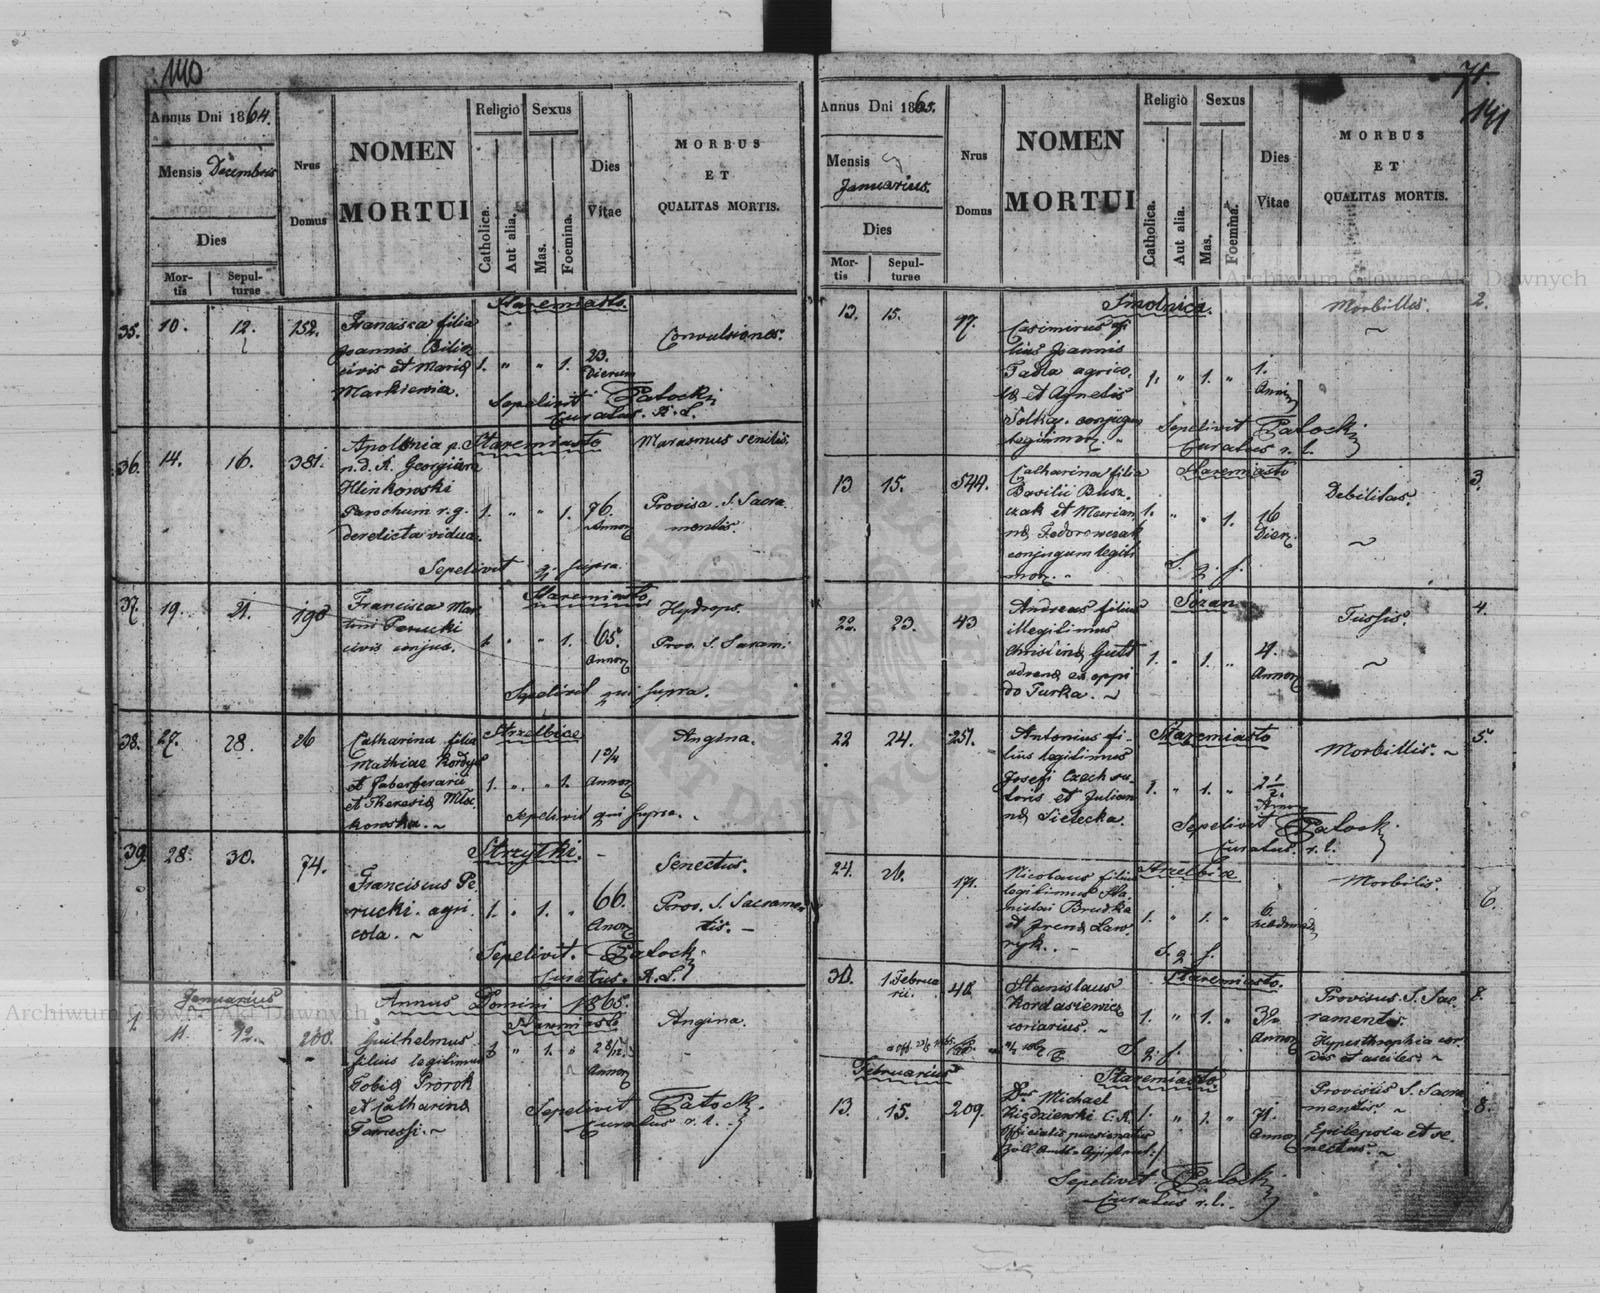 140
Annus Dni 1864.
Mensis Decembris
Dies
Mor-
tis
Sepul-
turae
Nrus
Domus
NOMEN
MORTUI
Religio
Catholica.
Aut alia.
Sexus
Mas.
Foemina.
Dies
Vitae
MORBUS
ET
QUALITAS MORTIS.
Staremiasto.
35. 10. 12. 152. Francisca filia
Joannis Bilicz
civis et Maria
Markiewicz.
1. " " 1. 23.
Dierum
Convulsiones.
Sepelivit Patocki
Curatus. R. L.
36. 14. 16. 381. Apolonia p. Staremiasto
p. d. A. Georgium
Hlinkowski
Parochum r. g.
derelicta vidua.
1. " " 1. 76.
Annor
Marasmus senilis.
Provisa S. Sacra
mentis.
Sepelivit q. supra.
37. 19. 21. 190 Staremiasto
Francisca Mar
tini Perucki
civis conjux.
1. " " 1. 65.
Annor
Hydrops.
Prov. S. Sacram.
Sepelivit qui supra.
38. 27. 28. 26 Strzelbice
Catharina filia
Mathiae Kordys
et Faberferarii
et Theresia Mło
kowska.
1. " " 1. 1 3/4
Annor
Angina.
Sepelivit qui supra.
39. 28. 30. 74. Strzylki.
Franciscus Pe
rucki. agri
cola.
1. " 1. " 66.
Annor
Senectus.
Prov. S. Sacramen
tis.
Sepelivit. Patocki
Curatus. R. L.
Januarius
Annus Domini 1865.
Staremiasto
1. 11. 12. 200. Guilhelmus
filius legitimus
Tobia Prorok
et Catharina
Tarussi.
" 1. " 2 8/12
Annor
Angina.
Sepelivit Patocki
Curatus r. l.
71.
141
Annus Dni 1865.
Mensis
Januarius.
Dies
Mor-
tis
Sepul-
turae
Nrus
Domus
NOMEN
MORTUI
Religio
Catholica.
Aut alia.
Sexus
Mas.
Foemina.
Dies
Vitae
MORBUS
ET
QUALITAS MORTIS.
Archiwum Główne Akt Dawnych
Smolnica.
13. 15. 97. Casimirus fi
lius Joannis
Tabla agrico
la et Agnetis
conjugum
legitimor.
1. " 1. " 1.
Anni
Morbillis. 2.
Sepelivit Patocki
Curatus r. l.
Staremiasto
13 15. 544. Catharina filia
Basilii Busz
czak et Marian
na Fedorowczak
conjugum legiti
mor.
1. " " 1. 16
Dier.
Debilitas. 3.
S. q. s.
Sozan
22. 23. 43 Andreas filius
illegitimus
Christina Gutt
ex oppi
do Turka.
1. " 1. " 4.
Annor
Tussis. 4.
Staremiasto
22 24. 251. Antonius fi-
lius legitimus
Josefi Czech su
toris et Julian
na Sielecka.
1. " 1. " 2 1/2.
Annor
Morbillis. 5.
Sepelivit Patocki
Curatus. r. l.
Strzelbice
24. 26. 171. Nicolaus filius
legitimus Sta
nislai Brudka
et Irena Ław
ryk.
1. " 1. " 6.
hebdomad
Morbilis. 6.
S. q. s.
Staremiasto.
30. 1. Februa
rii. 40. Stanislaus
Kordasiewicz
coriarius.
1. " 1. " 32
Annor
Provisus S. Sac
ramentis.
Hyperthrophia cor
dis et ascites.
8.
S. q. s.
Februarius
Staremiasto.
13. 15. 209. Dnus Michael
Kiędzierski C. R.
Officialis pensionatus
1. " 1. " 71.
Annor
Provisus S. Sacra
mentis.
Epilepsia et se
nectus.
8.
Sepelivit Patocki
Curatus r. l.
Archiwum Główne Akt Dawnych